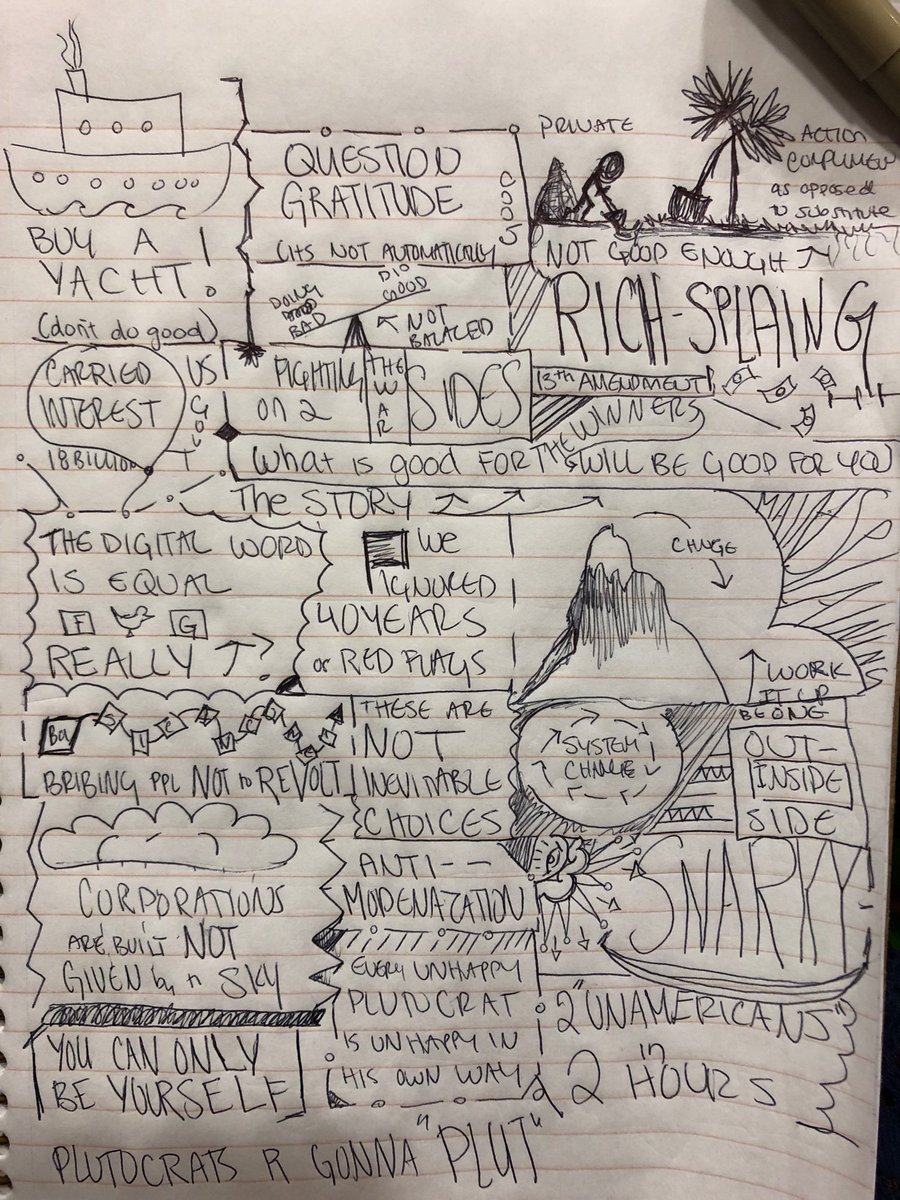 BUY A
YACHT!
(don't do good)
QUESTION
GRATITUDE
GOOD
ITS NOT AUTOMATICALLY
DOING
BAD
DID
GOOD
NOT
BALACED
PRIVATE
ACTION
COMPLIMEN
as opposed
to substitute
NOT GOOD ENOUGH
RICH-SPLAING
13th AMENDMENT
CARRIED
INTEREST
18 BILLION
US GOVT
FIGHTING
on 2
THE WAR
SIDES
What is good FOR THE WINNERS WILL BE GOOD FOR YOU
The STORY
THE DIGITAL WORD
IS EQUAL
F G
REALLY ?
WE
IGNORED
40 YEARS
of RED FLAGS
CHNGE
WORK
IT UP
BEONG
OUT-
INSIDE
SIDE
BRIBING PPL NOT to REVOLT
THESE ARE
NOT
INEVITABLE
CHOICES
SYSTEM
CHANGE
CORPORATIONS
ARE BUILT NOT
GIVEN by n SKY
ANTI--
MODENAZATION
SNARKY
EVERY UNHAPPY
PLUTOCRAT
IS UNHAPPY IN
HIS OWN WAY
2 "UNAMERICANS"
in
2 HOURS
YOU CAN ONLY
BE YOURSELF
PLUTOCRATS R GONNA "PLUT"